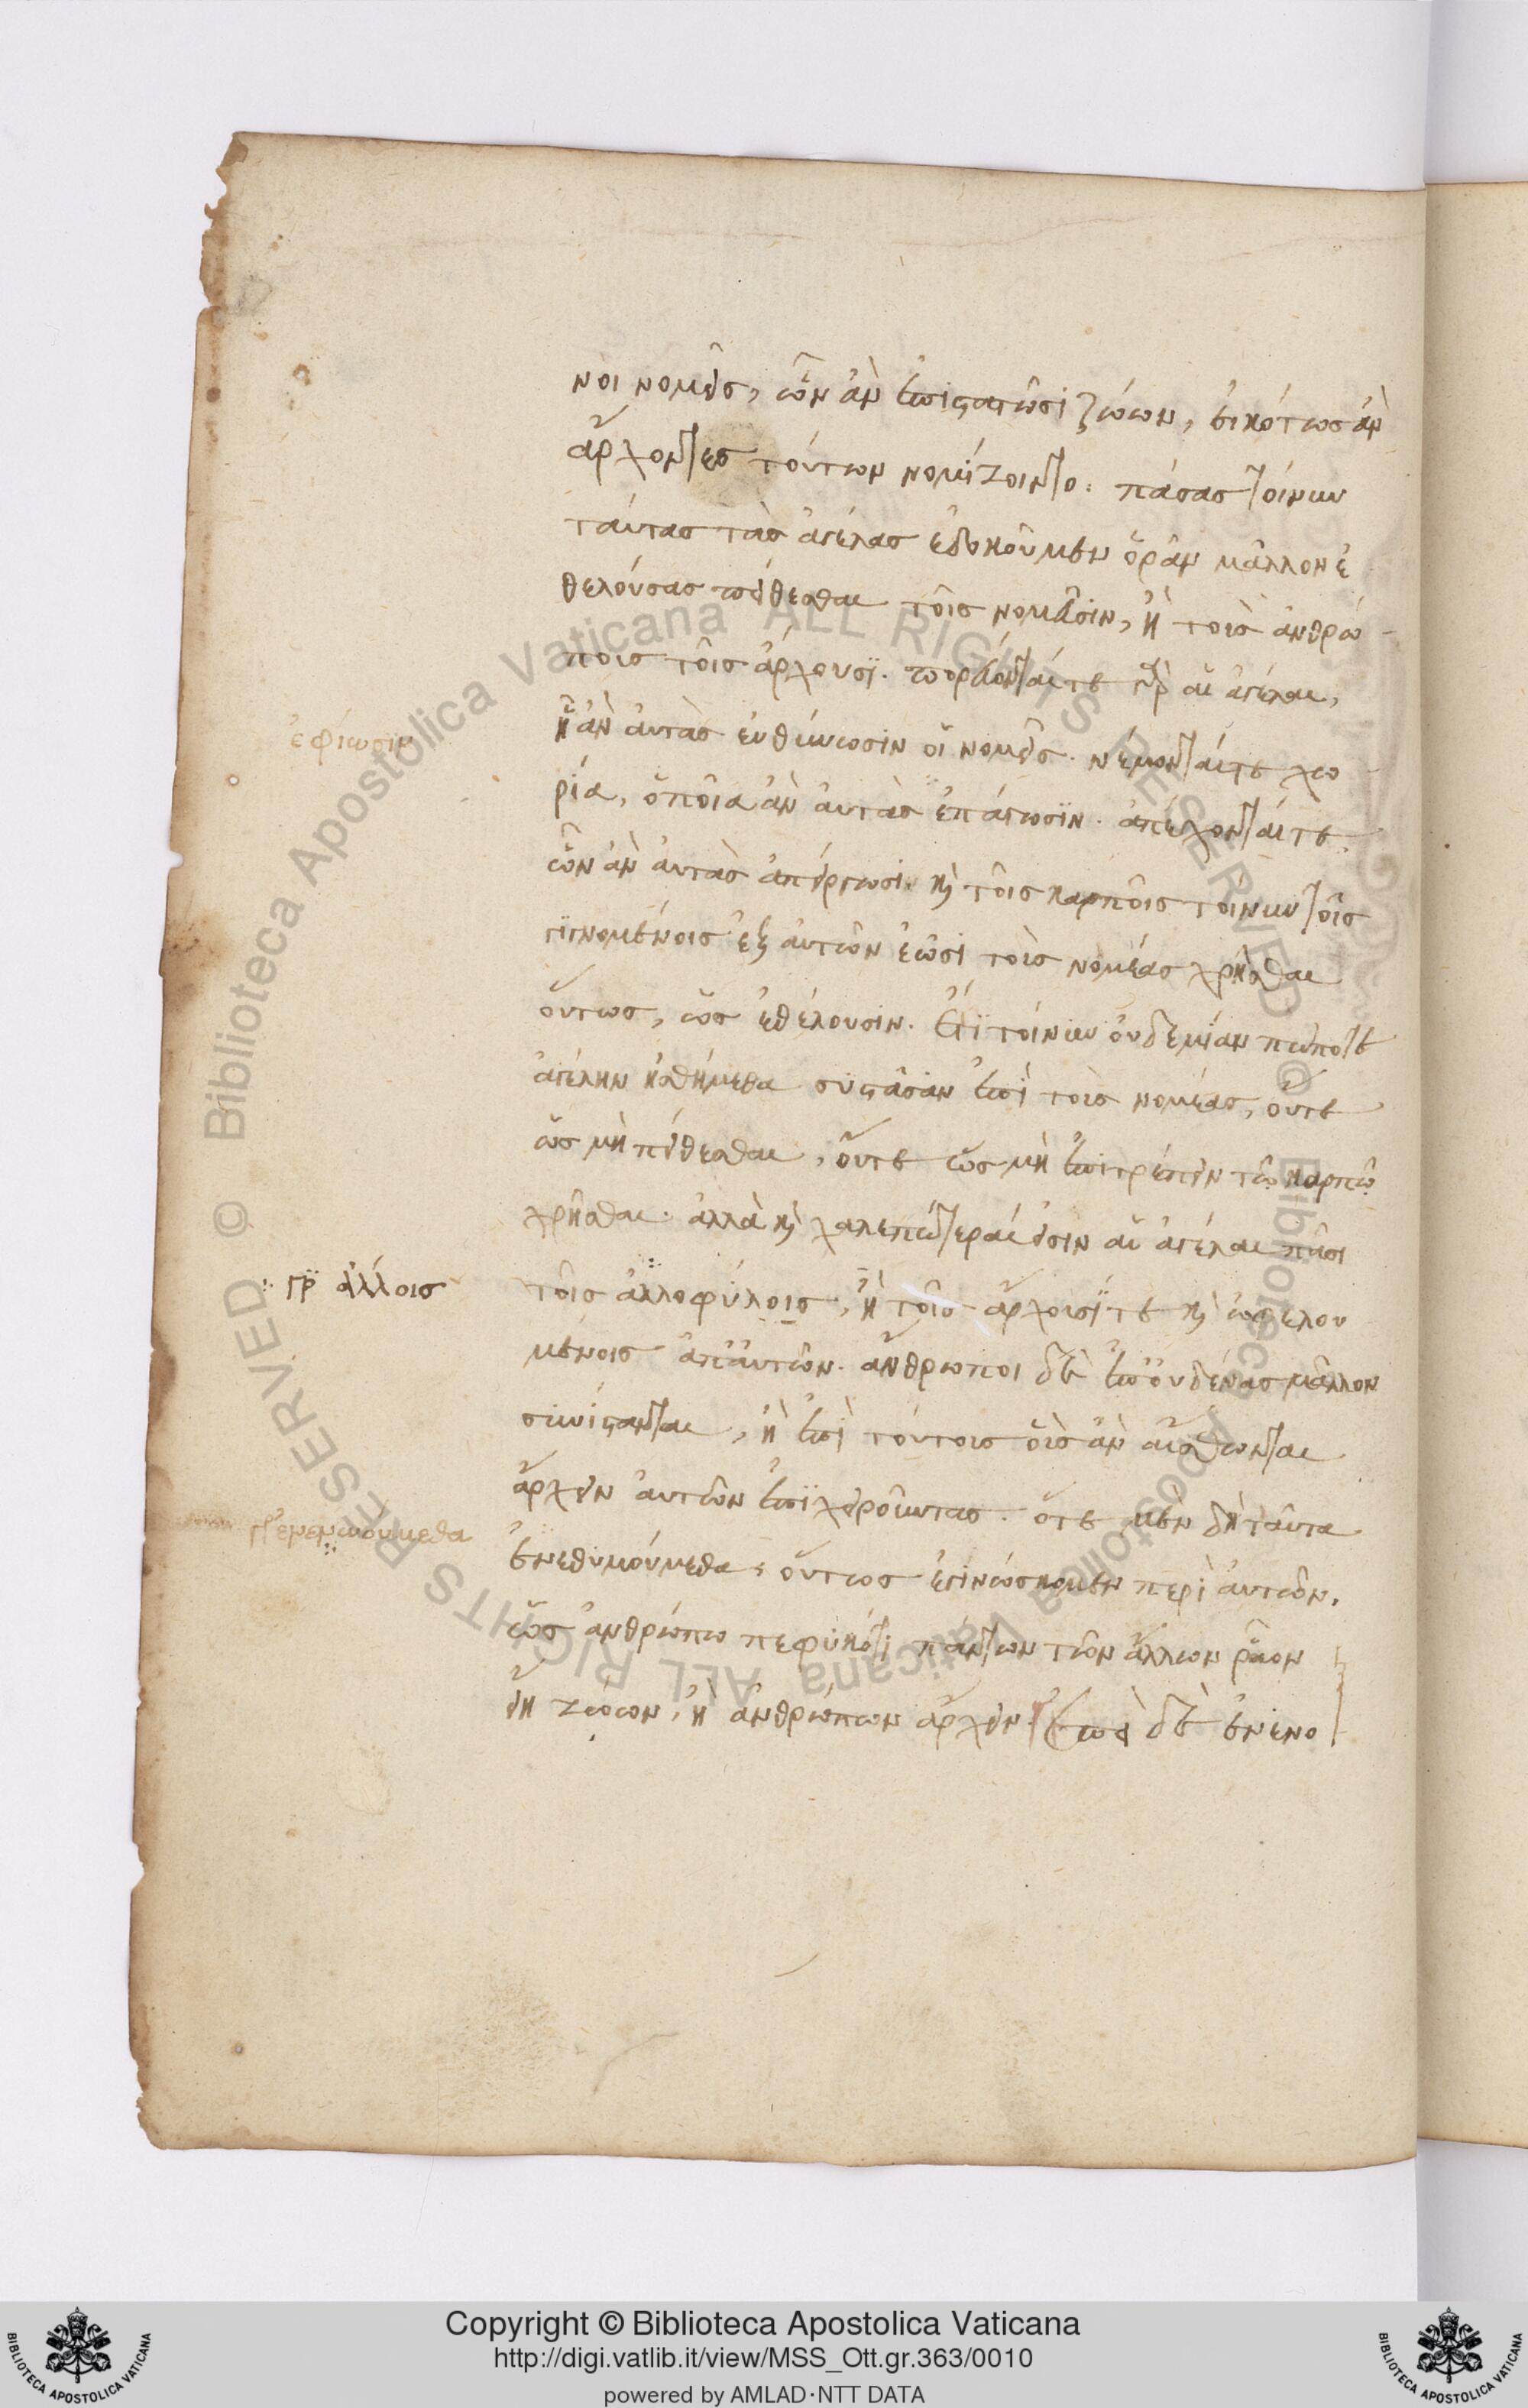 νοι νομεῖς, ὧν ἂν ἐπιστατῶσι ζώων, εἰκότως ἂν
ἄρχοντες τούτων νομίζοιντο: πάσας τοίνυν
ταύτας τὰς ἀγέλας ἐδοκοῦμεν ὁρᾶν μᾶλλον ἐ
θελούσας πείθεσθαι τοῖς νομεῦσιν, ἢ τοὺς ἀνθρώ-
ποις τοῖς ἄρχουσι. πορεύονταί τε γὰρ αἱ ἀγέλαι,
ᾗ ἂν αὐτὰς εὐθύνωσιν οἱ νομεῖς. νέμονταί τε χω-
ἐφίωσιν
ρία, ὁποῖα ἂν αὐτὰς ἐπάγωσιν. ἀπέχονταί τε,
ὧν ἂν αὐτὰς ἀπείργωσι. καὶ τοῖς καρποῖς τοίνυν τοῖς
γιγνομένοις ἐξ αὐτῶν ἐῶσι τοὺς νομέας χρῆσθαι
οὕτως, ὡς ἐθέλουσιν. ἔτι τοίνυν οὐδεμίαν πώποτε
ἀγέλην ᾐσθήμεθα συστᾶσαν ἐπὶ τοὺς νομέας, οὔτε
ὡς μὴ πείθεσθαι, οὔτε ὡς μὴ ἐπιτρέπειν τῷ καρπῷ
χρῆσθαι. ἀλλὰ καὶ χαλεπώτεραί εἰσιν αἱ ἀγέλαι πᾶσι
τοῖς ἀλλοφύλοις, ἢ τοῖς ἄρχουσί τε καὶ ὠφελου
γρ ἄλλοις
μένοις ἀπ' αὐτῶν. ἄνθρωποι δὲ ἐπ' οὐδένας μᾶλλον
συνίστανται, ἢ ἐπὶ τούτοις οὓς ἂν αἴσθωνται
ἄρχειν αὐτῶν ἐπιχειροῦντας. ὅτε μὲν δὴ ταῦτα
ἐνεθυμούμεθα, οὕτως ἐγινώσκομεν περὶ αὐτῶν,
γρ ἐνενοούμεθα
ὡς ἀνθρώπῳ πεφυκότι πάντων τῶν ἄλλων ῥᾷον
εἴη ζώων, ἢ ἀνθρώπων ἄρχειν. ἐπεὶ δὲ ἐνενο